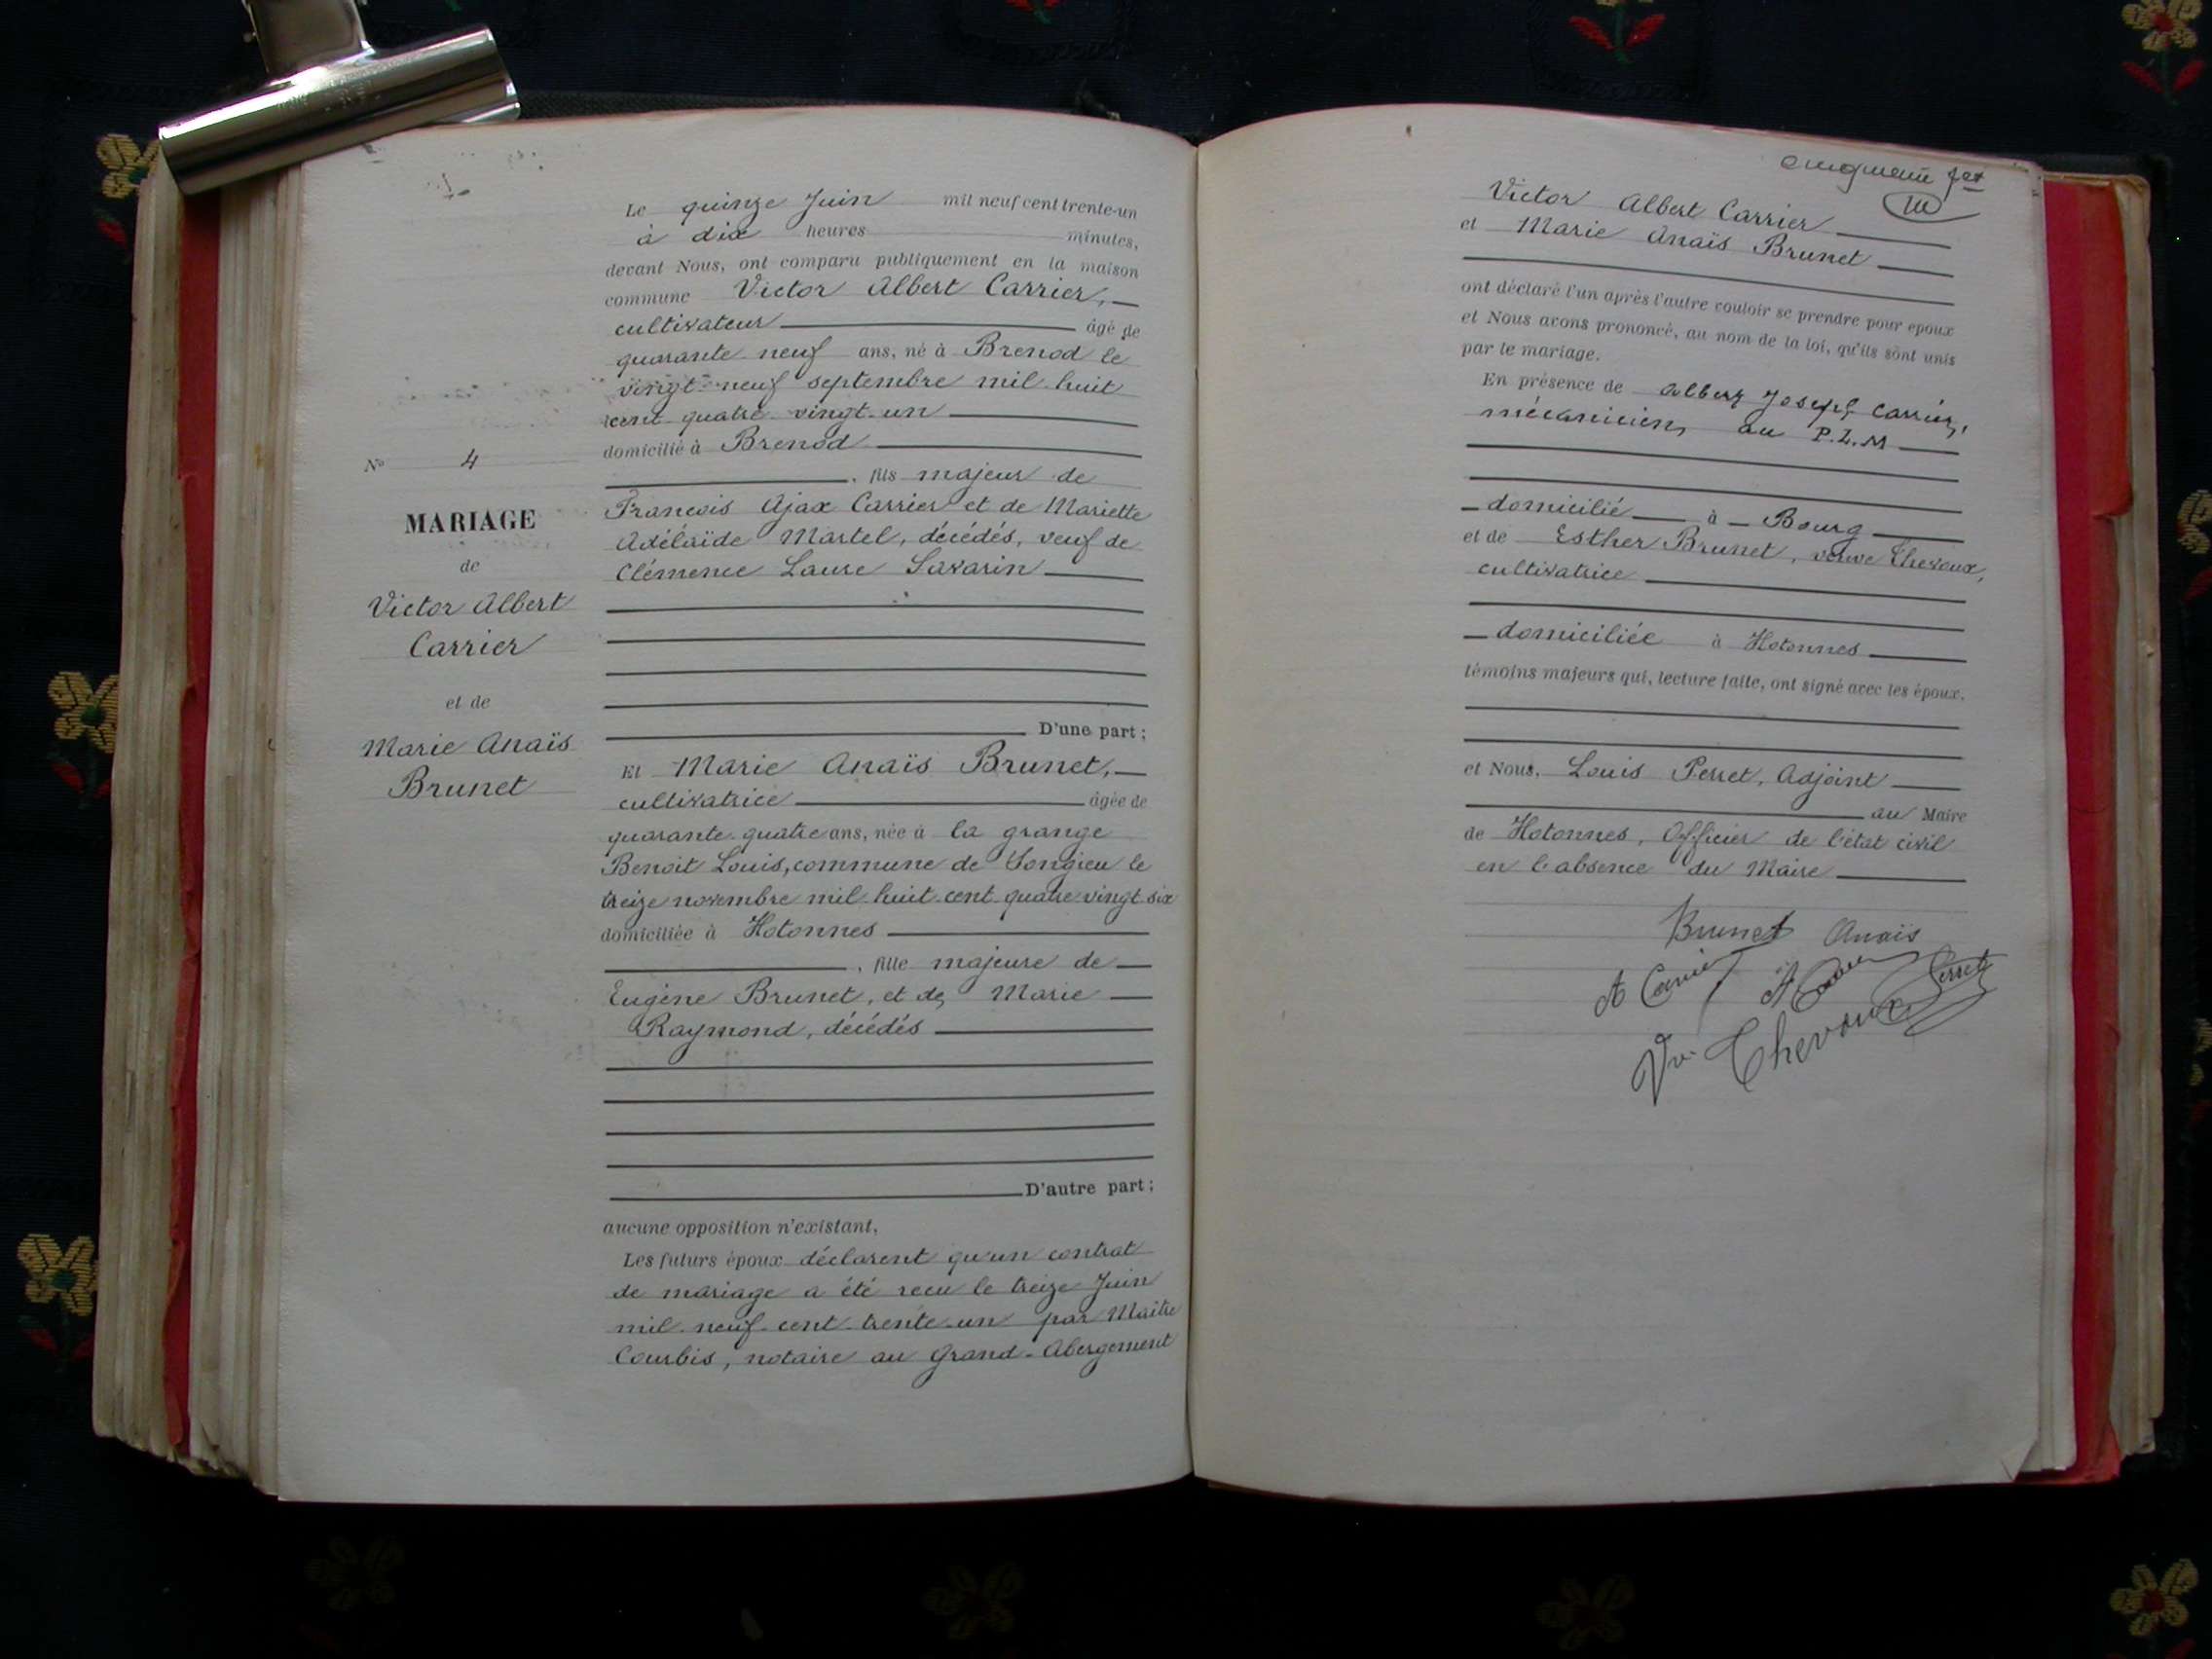 Le quinze Juin mil neuf cent trente-un
à dix heures minutes,
devant Nous, ont comparu publiquement en la maison
commune Victor Albert Carrier,
cultivateur âgé de
quarante neuf ans, né à Brenod le
vingt-neuf septembre mil huit
cent quatre-vingt-un
domicilié à Brenod
, fils majeur de
Francois Ajax Carrier et de Mariette
Adélaïde Martel, décédés, veuf de
Clémence Laure Savarin
D'une part ;
Et Marie Anaïs Brunet,
cultivatrice âgée de
quarante-quatre ans, née à la grange
Benoit Louis, commune de Songieu le
treize novembre mil huit-cent-quatre-vingt-six
domiciliée à Hotonnes
, fille majeure de
Eugène Brunet, et de Marie
Raymond, décédés
D'autre part ;
aucune opposition n'existant,
Les futurs époux déclarent qu'un contrat
de mariage a été recu le treize Juin
mil-neuf-cent-trente-un par Maître
Courbis, notaire au Grand-Abergement
No 4
MARIAGE
de
Victor Albert
Carrier
et de
Marie Anaïs
Brunet
Victor Albert Carrier
et Marie Anaïs Brunet
ont déclaré l'un après l'autre vouloir se prendre pour époux
et Nous avons prononcé, au nom de la loi, qu'ils sont unis
par le mariage.
En présence de Albert Joseph Carrier,
mécanicien, au P.L.M
domicilié à Bourg
et de Esther Brunet, veuve Chevoux,
cultivatrice
domiciliée à Hotonnes
témoins majeurs qui, lecture faite, ont signé avec les époux,
et Nous, Louis Perret, Adjoint
au Maire
de Hotonnes, Officier de l'état civil
en l'absence du Maire
Brunet Anaïs
A Carrier
Perret
Vve Chevoux